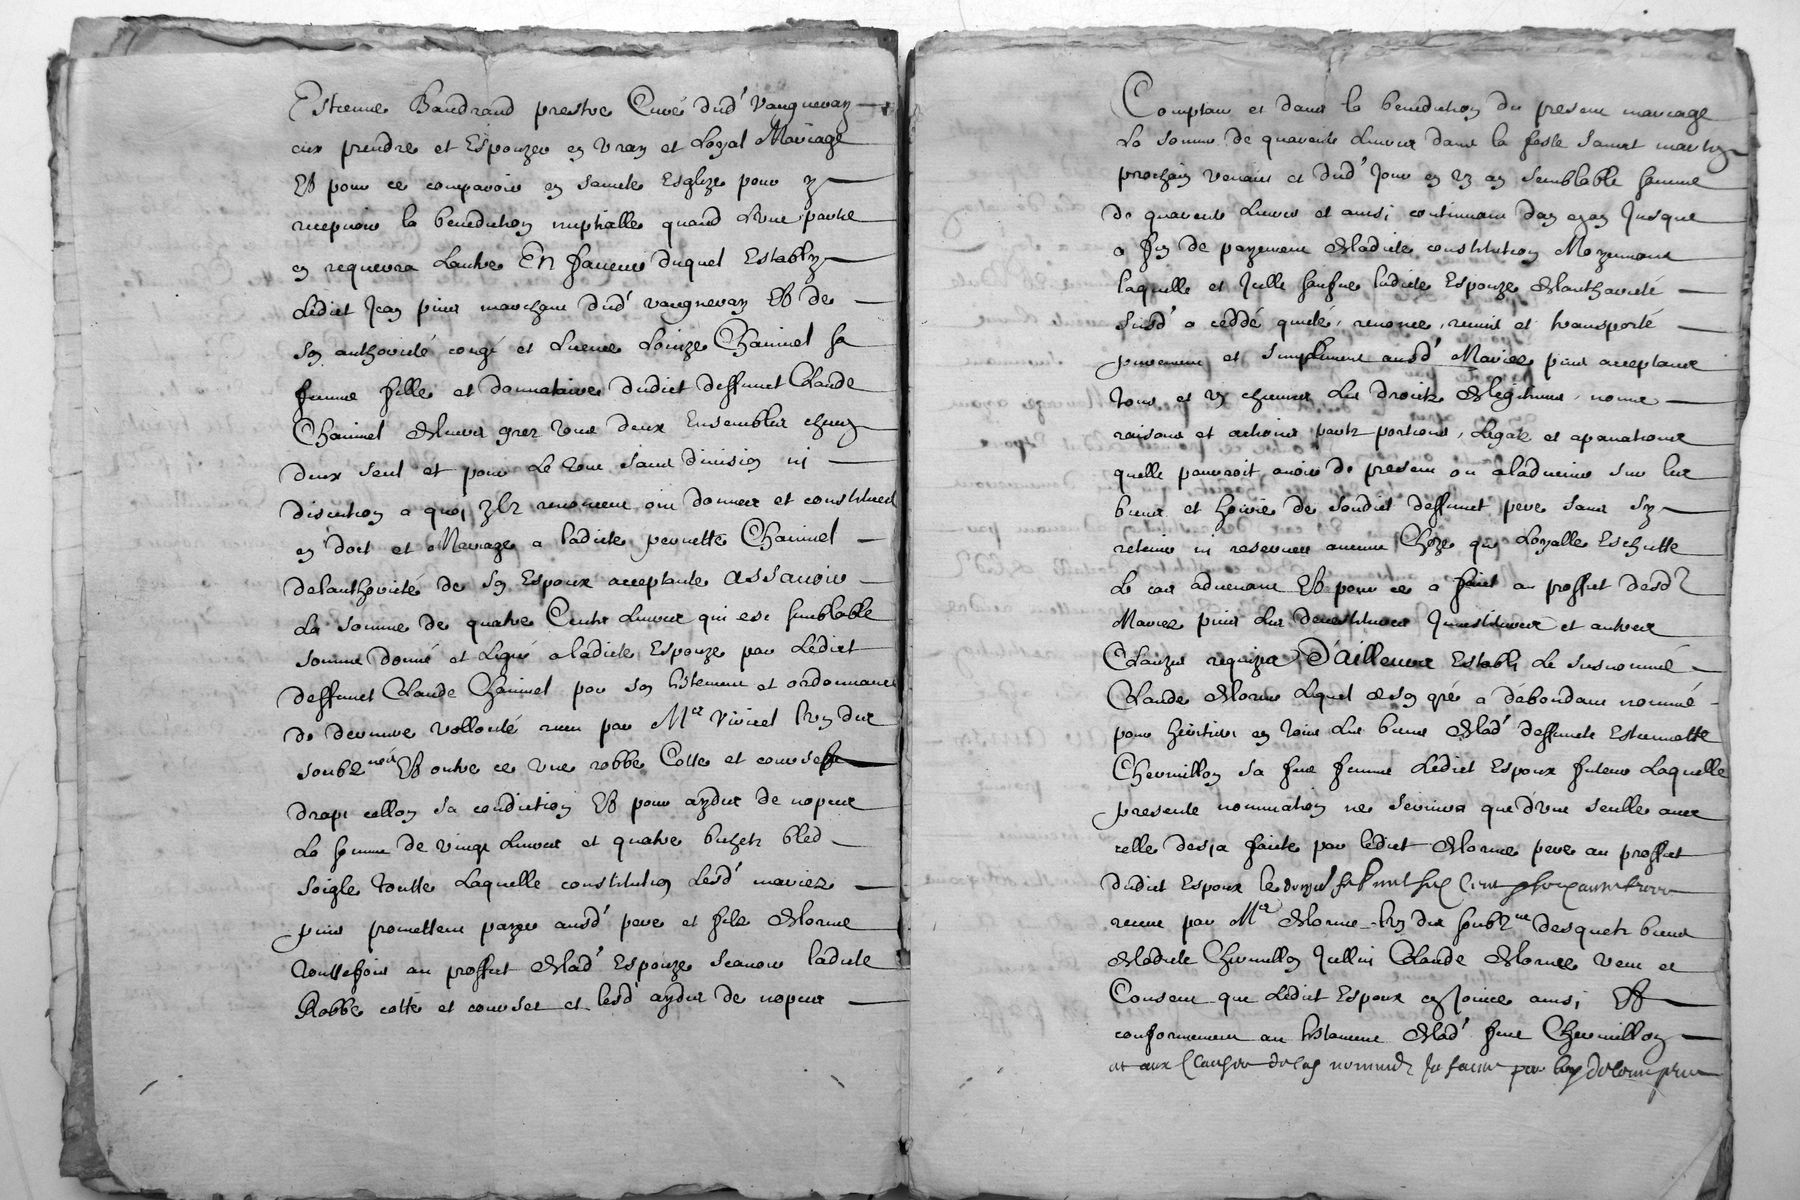 Estienne Baudrand prestre Curé dud' Vaugneray
eux prendre et Espouzer en vray et Loyal Mariage
Et pour ce comparoir en saincte Esglize pour y
recepvoir la benediction nuptialle quand L'vne partie
en requerra Lautre En faveur duquel Estably
Ledict Jean marchant dud' vaugneray Et de
Son authorité congé et Licence Loüize Chavinel sa
femme fille et donnataire dudict deffunct Claude
Chavinel grez tous deux Ensembles
deux seul et pour Le tout sans division ni
discution a quoi ylz renoncent ont donnez et constitues
en doct et Mariage a ladicte pernette Chavinel
delauthorité de Son Espoux acceptante assavoir
La Somme de quatre Centz Livres qui est semblable
somme donné et Legué a ladicte Espouze par Ledict
deffunct Claude Chavinel par son testement et ordonnance
de derniere vollonté receu par Me Viricel
soubz Et outre ce vne robbe Cotte et corset
drapt cellon sa condiction Et pour aydes de nopces
La somme de vingt Livres et quatre bichetz bled
soigle toutte Laquelle constitution Lesd' mariez
promettent payer ausd' pere et filz
touttesfois au proffict Espouze scavoir ladicte
Robbe cotte et corset et lesd' aydes de nopces
Comptant et dans la benediction du present mariage
La somme de quarante Livres dans la feste Sainct martin
prochain venant et dud' Jour en vn an semblable somme
de quarante Livres et ainsi continuant dan en an Jusque
a fin de payement constitution Moyennant
laquelle et Icelle ladicte Espouze
Susd' a ceddé quicté, renoncé, remis et transporté
purement et simplement ausd' Mariez acceptant
tous et vn chacuns Les droictz noms
raisons et actions partz portions, Legatz et
quelle pourroit avoir de present ou aladvenir sur les
biens et hoirie de sondict deffunct pere sans s'y
retenir ni reserver aucune Choze que Loyalle Escheutte
Le cas advenant Et pour ce a faict au proffict desd'
Mariez Les devestitures Investitures et autres
Clauzes requizes D'ailleurs Establi Le susnommé
Claude Lequel de son gré a débondant nommé
pour heritier en tous Les biens deffuncte Estiennette
Chermillon sa feue femme Ledict Espoux futeur Laquelle
presente nomination ne servira que d'vne seulle avec
celle desja faicte par ledict pere au proffict
dudict Espoux le
receue par Me desquelz biens
Chermillon Icelluy Claude veut et
Consent que Ledict Espoux en Joüisse ainsi Et
conformement au testament feue Chermillon